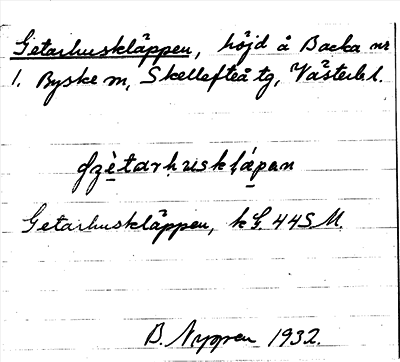 Getarhuskläppen, höjd å Backa nr
1. Byske sn, Skellefteå tg, Västerb l.
Getarhuskläppen, k G. 44 S M.
B. Nygren 1932.